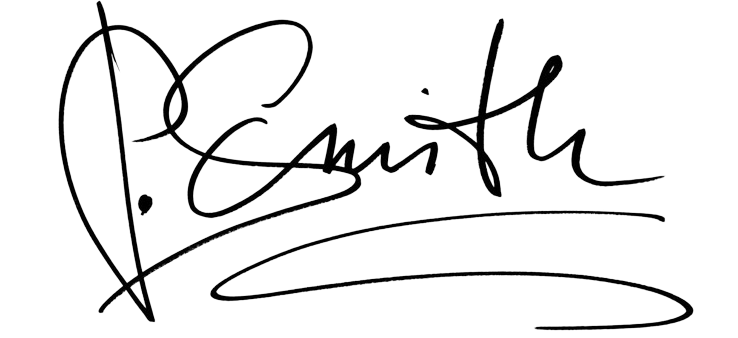 P. Smith